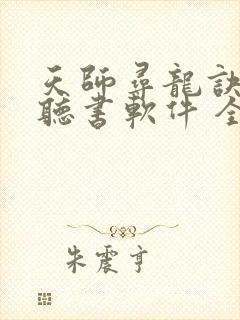 天師尋龍訣
聽書軟件 全
朱震亨